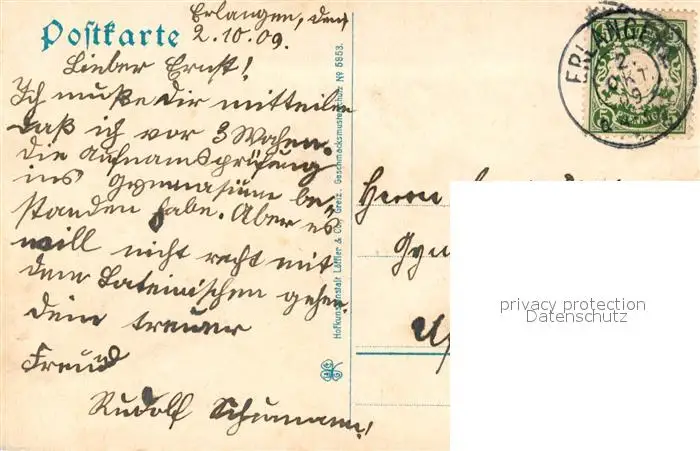 Postkarte
Erlangen, den
2.10.09.
Lieber Ernst!
Ich muße dir mitteilen
daß ich vor 3 Wochen
die Aufnamsprüfung
ins Gymnasium be-
standen habe. Aber es
will nicht recht mit
dem Lateinischen gehen.
Dein treuer
Freund
Rudolf Schumann!
Hofkunstanstalt Löffler & Co., Greiz. Geschmacksmusterschutz No 5853.
ERLANGEN
2.
OKT.
9
5 PFENNIG 5
Herrn
Gym
privacy protection
Datenschutz